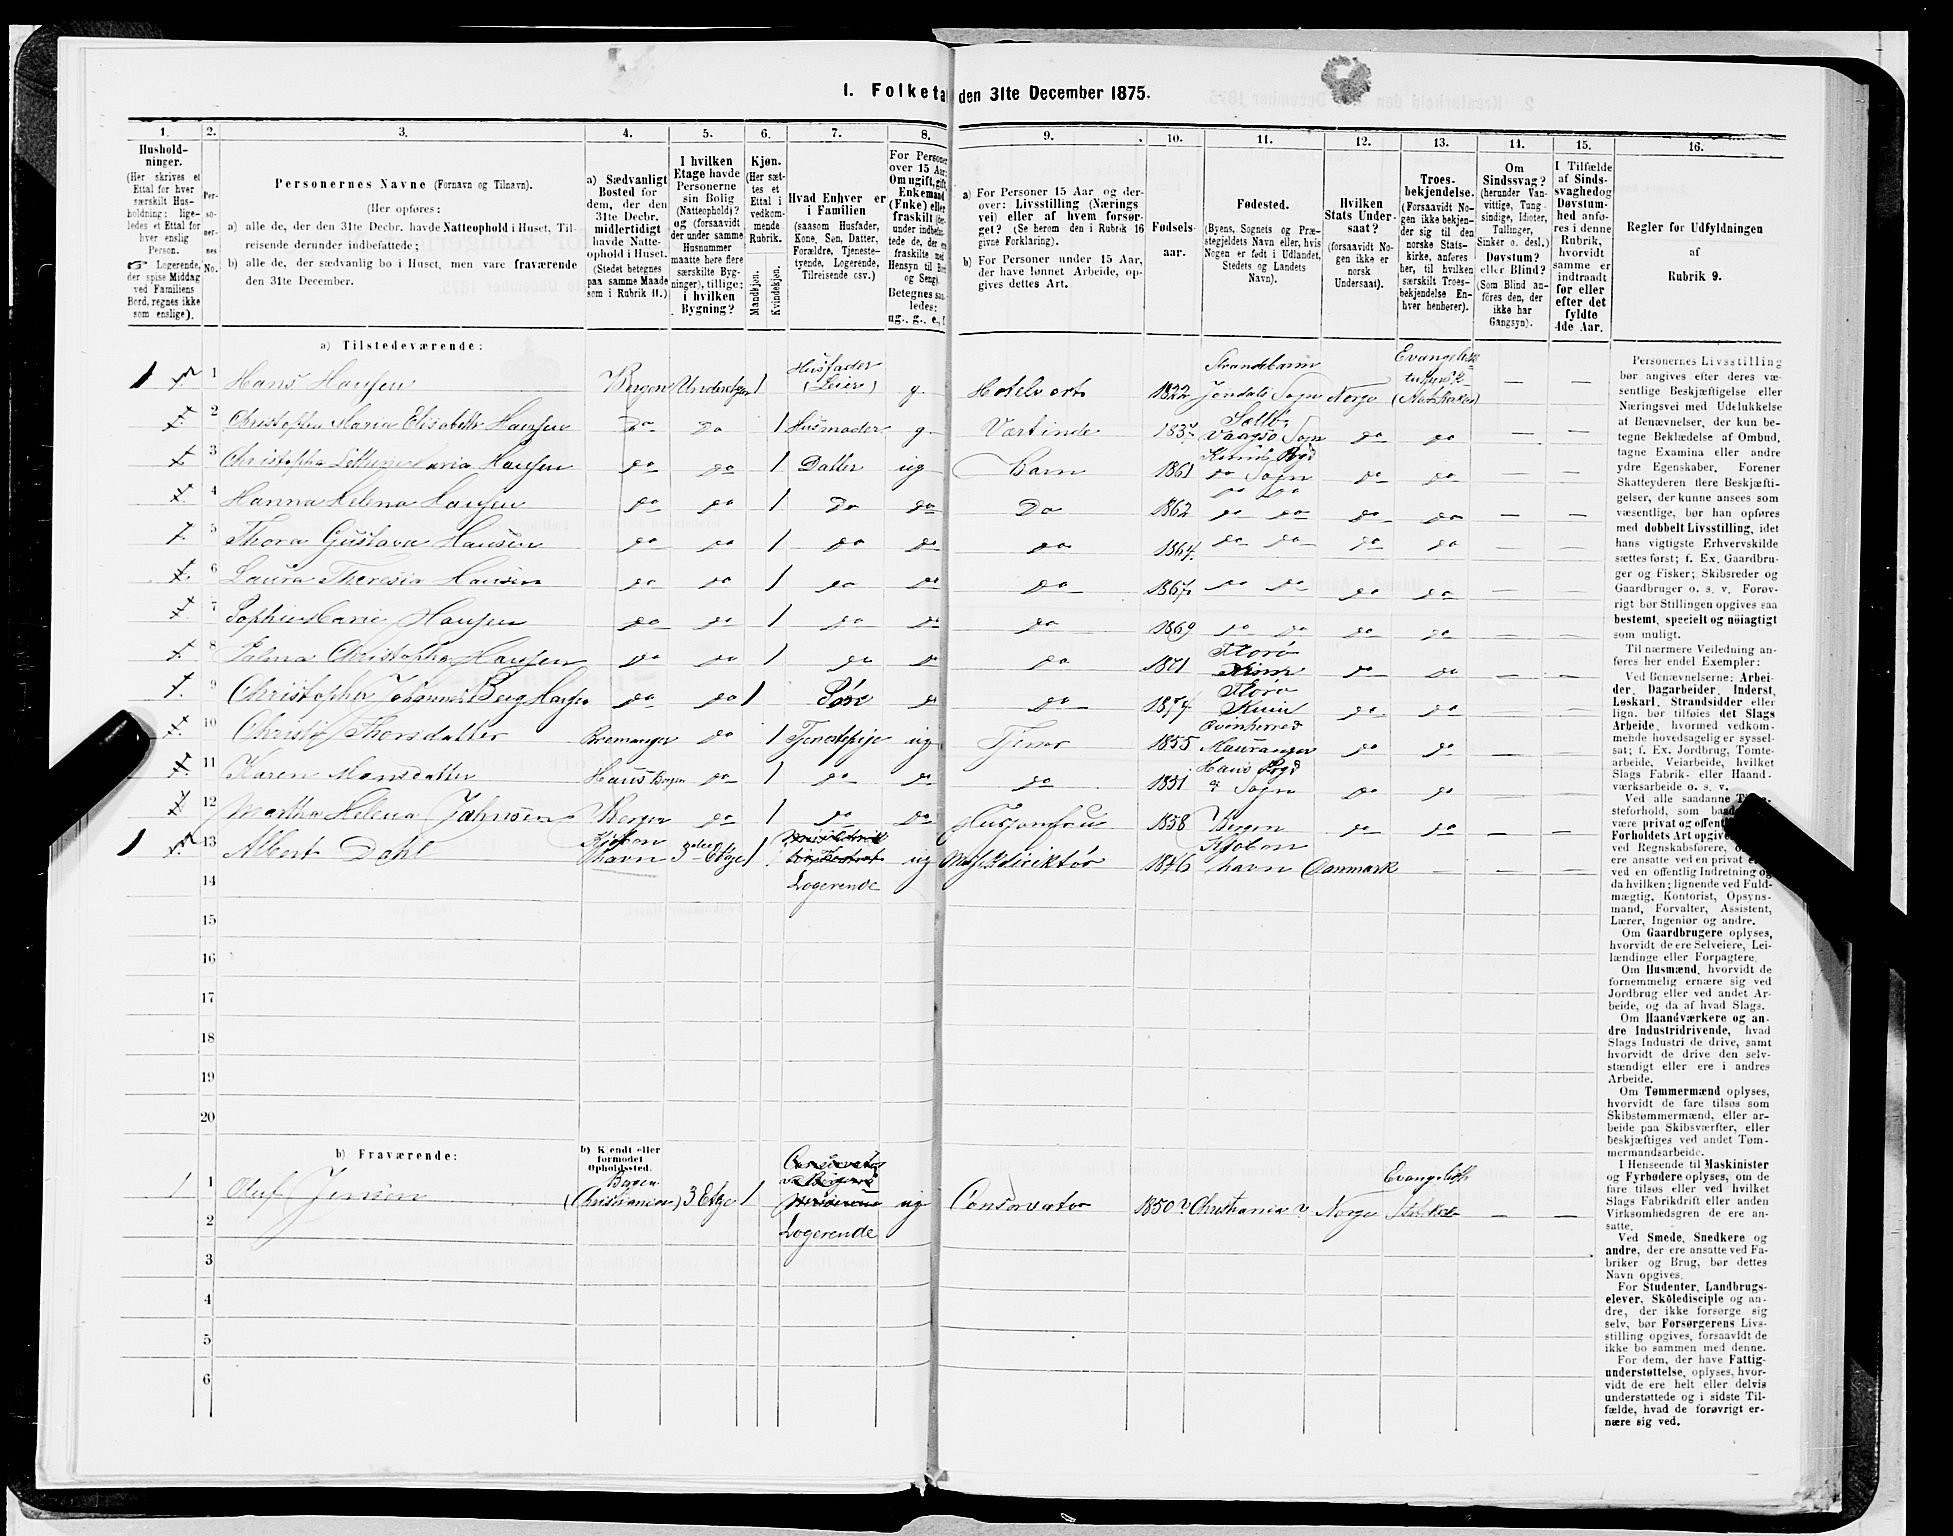 1. Folketa den 31te December 1875.
1. 2. 3. 4. 5. 6. 7. 8. 9. 10. 11. 12. 13. 14. 15. 16.
Hushold-
ninger.
(Her skrives et
Ettal for hver
særskilt Hus-
holdning; lige-
ledes et Ettal for
hver enslig
Person.
Logerende,
der spise Middag
ved Familiens
Bord, regnes ikke
som enslige).
Per-
so-
ner-
nes
No.
Personernes Navne (Fornavn og Tilnavn).
(Her opføres:
a) alle de, der den 31te Decbr. havde Natteophold i Huset, Til-
reisende derunder indbefattede;
b) alle de, der sædvanlig bo i Huset, men vare fraværende
den 31te December.
a) Sædvanligt
Bosted for
dem, der den
31te Decbr.
midlertidigt
havde Natte-
ophold i Huset.
(Stedet betegnes
paa samme Maade
som i Rubrik 11.)
I hvilken
Etage havde
Personerne
sin Bolig
(Natteophold)?
og (forsaavidt
der under samme
Husnummer
maatte høre flere
særskilte Byg-
ninger), tillige:
i hvilken
Bygning?
Kjøn.
(Her sæt-
tes et
Ettal i
vedkom-
mende
Rubrik.
Mandkjøn.
Kvindekjøn.
Hvad Enhver er
i Familien
(saasom Husfader,
Kone, Søn, Datter,
Forældre, Tjeneste-
tyende, Logerende,
Tilreisende csv.)
For Personer
over 15 Aar:
Om ugift, gift,
Enkemand
(Enke) eller
fraskilt
Betegnes saa-
ledes:
ug., g., e., f.
a) For Personer 15 Aar og der-
over: Livsstilling (Nærings
vei) eller af hvem forsør-
get? (Se herom den i Rubrik 16
givne Forklaring).
b) For Personer under 15 Aar,
der have lønnet Arbeide, op-
gives dettes Art.
Fødsels-
aar.
Fødested.
(Byens, Sognets og Præ-
stegjeldets Navn eller, hvis
Nogen er født i Udlandet,
Stedets og Landets
Navn).
Hvilken
Stats Under-
saat?
(forsaavidt No-
gen ikke er
norsk
Undersaat).
Troes-
bekjendelse.
(Forsaavidt No-
gen ikke bekjen-
der sig til den
norske Stats-
kirke, anføres
her, til hvilken
særskilt Troes-
bekjendelse En-
hver henhører).
Om
Sindssvag?
(herunder Van-
vittige, Tung-
sindige, Idioter,
Tullinger,
Sinker o. desl.)
Døvstum?
eller Blind?
(Som Blind an-
føres den, der
ikke har
Gangsyn).
I Tilfælde
af Sinds-
svaghed og
Døvstum-
hed anfø-
res i denne
Rubrik,
hvorvidt
samme er
indtraadt
før eller
efter det
fyldte
4de Aar.
Regler for Udfyldningen
af
Rubrik 9.
a) Tilstedeværende:
1 Hans Hansen Bergen Underetgen 1 Husfader (Leier) g Hotelvert 1822 Strandebarm Jondals Sogn Norge Evangelisk — —
2 Christopha Maria Elisabeth Hansen Do Do 1 Husmoder g Værtinde 1837 Vaagsø Sogn do do — —
3 Christopha Maria Hansen do do 1 Datter ug Barn 1861 do Sogn do do — —
4 Hanna Helena Hansen do do 1 Do do Do 1862 do do do do — —
5 Thora Gustava Hansen do do 1 do do do 1864 do do do do — —
6 Laura Theresia Hansen do do 1 do do do 1867 do do do do — —
7 Sophie Marie Hansen do do 1 do do do 1869 do do do do — —
8 Palma Christopha Hansen do do 1 do do do 1871 Florø Kinn do do — —
9 Christopher Johannes Berg Hansen do do 1 Søn do do 1874 Florø Kinn do do — —
10 Christi Thorsdatter Bremanger do 1 Tjenestepige ug Tjener 1855 Qvinherred Mauranger do do — —
11 Karen Monsdatter Haus Bergen do 1 do do do 1851 Haus Prgd & Sogn do do — —
12 Martha Helena Jahnsen Bergen do 1 do do Husjomfru 1858 Bergen do do — —
13 Albert Dahl Kjøbenhavn 3die Etage 1 Logerende ug Musikdirektør 1846 Kjøbenhavn Danmark — — —
14
15
16
17
18
19
20
b) Fraværende:
b) Kjendt eller
formodet
Opholdssted.
1 Oluf Jensen Bergen (Christiania) 3 Etage 1 Logerende ug Conservator 1850? Christiania? Norge Evangelisk — —
2
3
4
5
6
Personernes Livsstilling
bør angives efter deres væ-
sentlige Beskjæftigelse eller
Næringsvei med Udelukkelse
af Benævnelser, der kun be-
tegne Beklædelse af Ombud,
tagne Examina eller andre
ydre Egenskaber. Forener
Skatteyderen flere Beskjæfti-
gelser, der kunne ansees som
væsentlige, bør han opføres
med dobbelt Livsstilling, idet
hans vigtigste Erhvervskilde
sættes først; f. Ex. Gaardbru-
ger og Fisker; Skibsreder og
Gaardbruger o. s. v. Forøv-
rigt bør Stillingen opgives saa
bestemt, specielt og nöiagtigt
som muligt.
Til nærmere Veiledning an-
føres her endel Exempler:
Ved Benævnelserne: Arbei-
der, Dagarbeider, Inderst,
Løskarl, Strandsidder eller
lign. bør tilføies det Slags
Arbeide, hvormed vedkom-
mende hovedsagelig er syssel-
sat; f. Ex. Jordbrug, Tomte-
arbeide, Veiarbeide, hvilket
Slags Fabrik- eller Haand-
værksarbeide o. s. v.
Ved alle saadanne
steforhold, som
være privat og offent
Forholdets Art opgiv
ved Regnskabsførere,
ere ansatte ved en privat
ved en offentlig Indretning og
da hvilken; lignende ved Fuld-
mægtig, Kontorist, Opsyns-
mand, Forvalter, Assistent,
Lærer, Ingeniør og andre.
Om Gaardbrugere oplyses,
hvorvidt de ere Selveiere, Lei-
lændinge eller Forpagtere.
Om Husmænd, hvorvidt de
fornemmelig ernære sig ved
Jordbrug eller ved andet Ar-
beide, og da af hvad Slags.
Om Haandværkere og an-
dre Industridrivende, hvad
Slags Industri de drive, samt
hvorvidt de drive den selv-
stændigt eller ere i andres
Arbeide.
Om Tømmermænd oplyses,
hvorvidt de fare tilsøs som
Skibstømmermænd, eller ar-
beide paa Skibsværfter, eller
beskjæftiges ved andet Tøm-
mermandsarbeide.
I Henseende til Maskinister
og Fyrbødere oplyses, om de
fare tilsøs eller ved hvilket
Slags Fabrikdrift eller anden
Virksomhedsgren de ere an-
satte.
Ved Smede, Snedkere og
andre, der ere ansatte ved Fa-
briker og Brug, bør dettes
Navn opgives.
For Studenter, Landbrugs-
elever, Skoledisciple og an-
dre, der ikke forsørge sig
selv, bør Forsørgerens Livs-
stilling opgives, forsaavidt de
ikke bo sammen med denne.
For dem, der have Fattig-
understøttelse, oplyses, hvor-
vidt de ere helt eller delvis
understøttede og i sidste Til-
fælde, hvad de forøvrigt er-
nære sig ved.